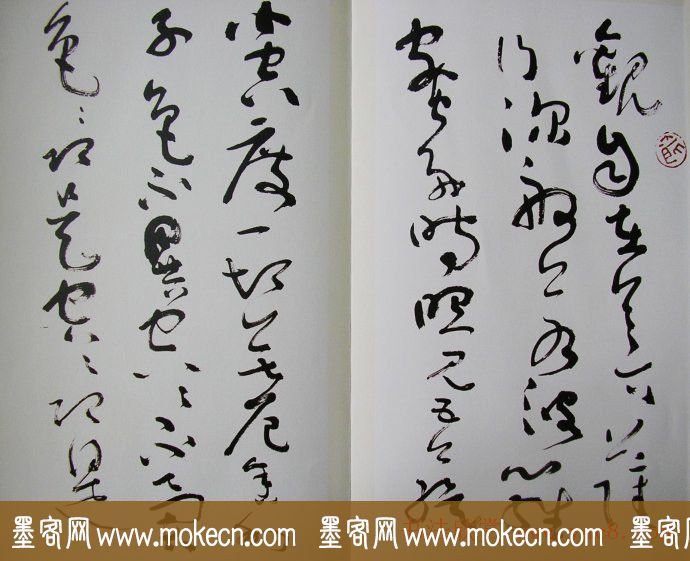 觀自在菩薩
行深般若波羅
蜜多時照見五蘊
皆空度一切苦厄舍利
子色不異空空不異
色色即是空空即是
墨客网 www.mokecn.com 墨客网 www.mokecn.com 墨客网